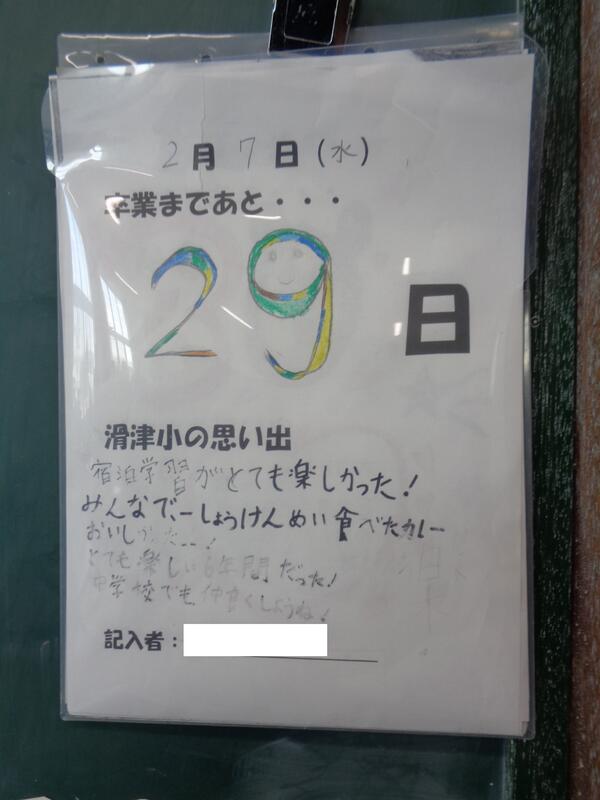 2月7日(水)
卒業まであと・・・
29日
滑津小の思い出
宿泊学習がとても楽しかった!
みんなでーしょうけんめい食べたカレー
おいしかった…!
とても楽しい6年間だった!
中学校でも仲良くしようね!
記入者: